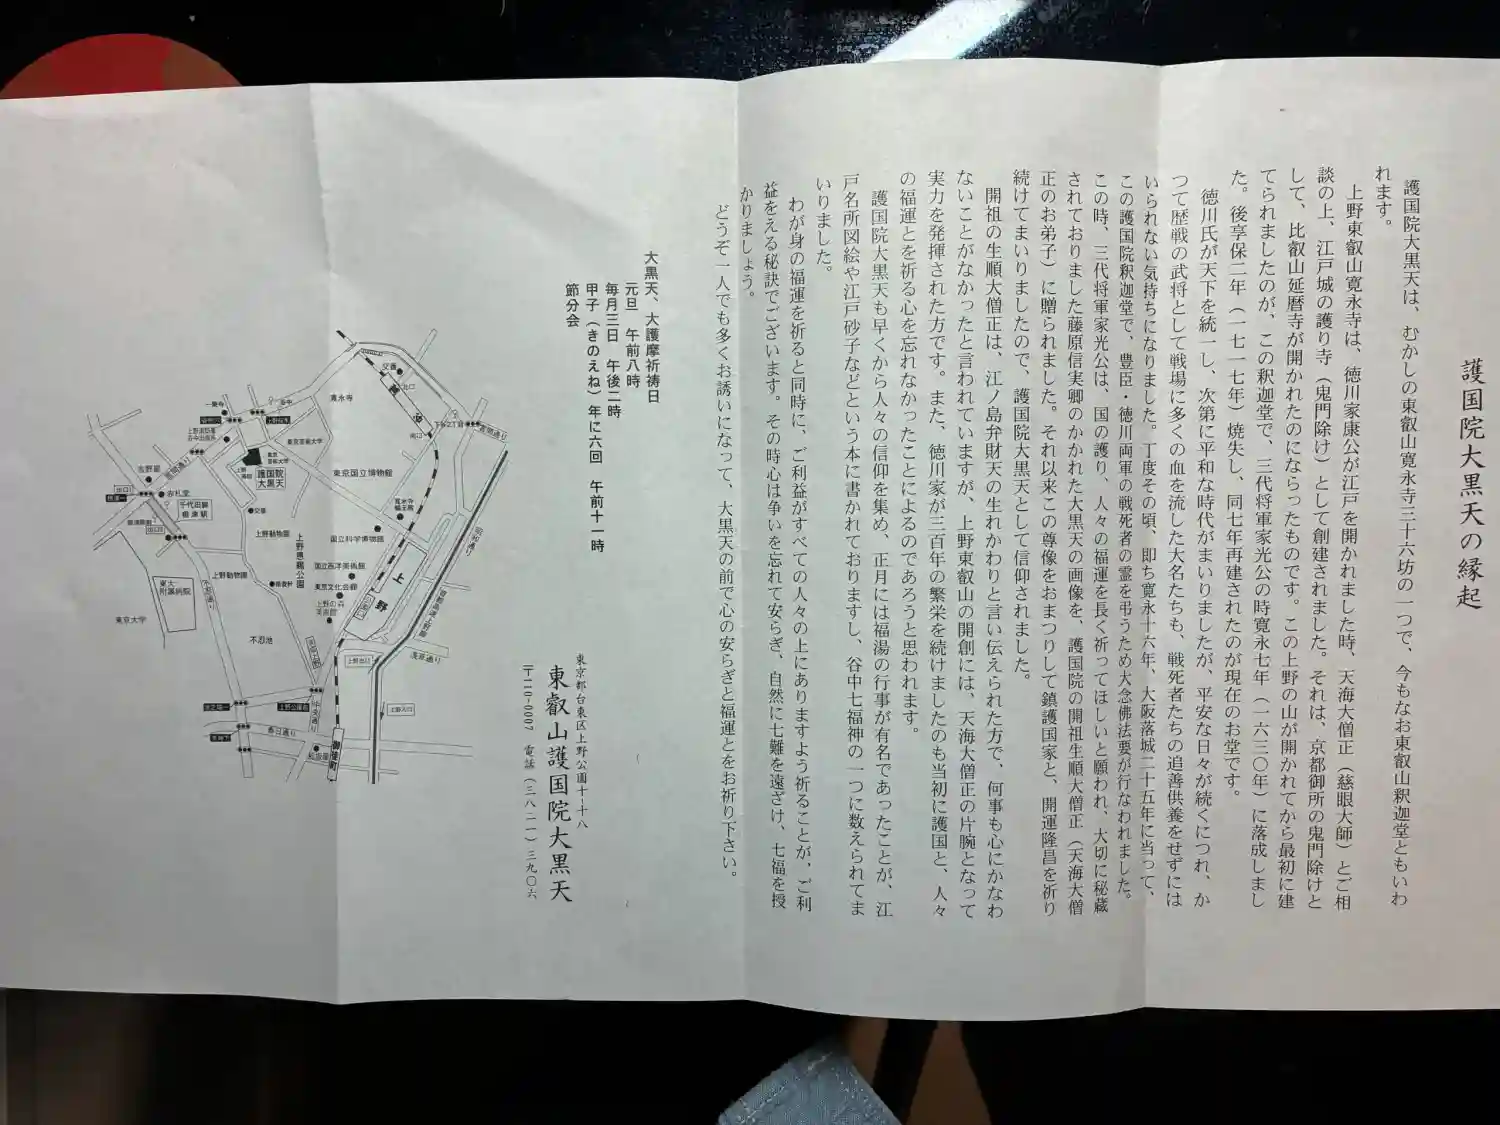 護国院大黒天の縁起
護国院大黒天は、むかしの東叡山寛永寺三十六坊の一つで、今もなお東叡山釈迦堂ともいわ
れます。
上野東叡山寛永寺は、徳川家康公が江戸を開かれました時、天海大僧正（慈眼大師）とご相
談の上、江戸城の護り寺（鬼門除け）として創建されました。それは、京都御所の鬼門除けと
して、比叡山延暦寺が開かれたのにならったものです。この上野の山が開かれてから最初に建
てられましたのが、この釈迦堂で、三代将軍家光公の時寛永七年（一六三〇年）に落成しまし
た。後享保二年（一七一七年）焼失し、同七年再建されたのが現在のお堂です。
徳川氏が天下を統一し、次第に平和な時代がまいりましたが、平安な日々が続くにつれ、か
つて歴戦の武将として戦場に多くの血を流した大名たちも、戦死者たちの追善供養をせずには
いられない気持ちになりました。丁度その頃、即ち寛永十六年、大阪落城二十五年に当って、
この護国院釈迦堂で、豊臣・徳川両軍の戦死者の霊を弔うため大念佛法要が行なわれました。
この時、三代将軍家光公は、国の護り、人々の福運を長く祈ってほしいと願われ、大切に秘蔵
されておりました藤原信実卿のかかれた大黒天の画像を、護国院の開祖生順大僧正（天海大僧
正のお弟子）に贈られました。それ以来この尊像をおまつりして鎮護国家と、開運隆昌を祈り
続けてまいりましたので、護国院大黒天として信仰されました。
開祖の生順大僧正は、江ノ島弁財天の生れかわりと言い伝えられた方で、何事も心にかなわ
ないことがなかったと言われていますが、上野東叡山の開創には、天海大僧正の片腕となって
実力を発揮された方です。また、徳川家が三百年の繁栄を続けましたのも当初に護国と、人々
の福運とを祈る心を忘れなかったことによるのであろうと思われます。
護国院大黒天も早くから人々の信仰を集め、正月には福湯の行事が有名であったことが、江
戸名所図絵や江戸砂子などという本に書かれておりますし、谷中七福神の一つに数えられてま
いりました。
わが身の福運を祈ると同時に、ご利益がすべての人々の上にありますよう祈ることが、ご利
益をえる秘訣でございます。その時心は争いを忘れて安らぎ、自然に七難を遠ざけ、七福を授
かりましょう。
どうぞ一人でも多くお誘いになって、大黒天の前で心の安らぎと福運とをお祈り下さい。
大黒天、大護摩祈祷日
元旦 午前八時
毎月三日 午後二時
甲子（きのえね）年に六回 午前十一時
節分会
東京都台東区上野公園十－十八
東叡山護国院大黒天
〒110-0007 電話（三八二一）三九〇六
交番
北口
南口
寛永寺
言問通り
東京芸術大学
護国院
大黒天
東京国立博物館
吉野屋
赤札堂
千代田線
根津駅
交番
上野動物園
上野恩賜公園
国立科学博物館
国立西洋美術館
東京文化会館
上野の森
美術館
上野動物園
不忍池
東大
附属病院
東京大学
不忍通り
上野
昭和通り
浅草通り
首都高速上野線
上野出口
上野入口
中央通り
春日通り
松坂屋
御徒町